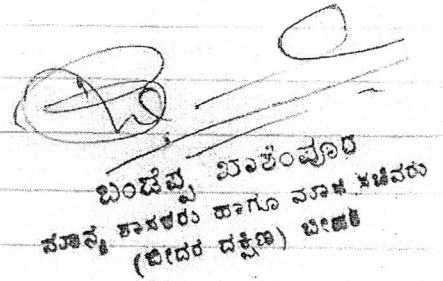 ಬಂಡೆಪ್ಪ ಖಾಶೆಂಪೂರ
ಮಾನ್ಯ ಶಾಸಕರು ಹಾಗೂ ಮಾಜಿ ಸಚಿವರು
(ಬೀದರ ದಕ್ಷಿಣ) ಬೀದರ